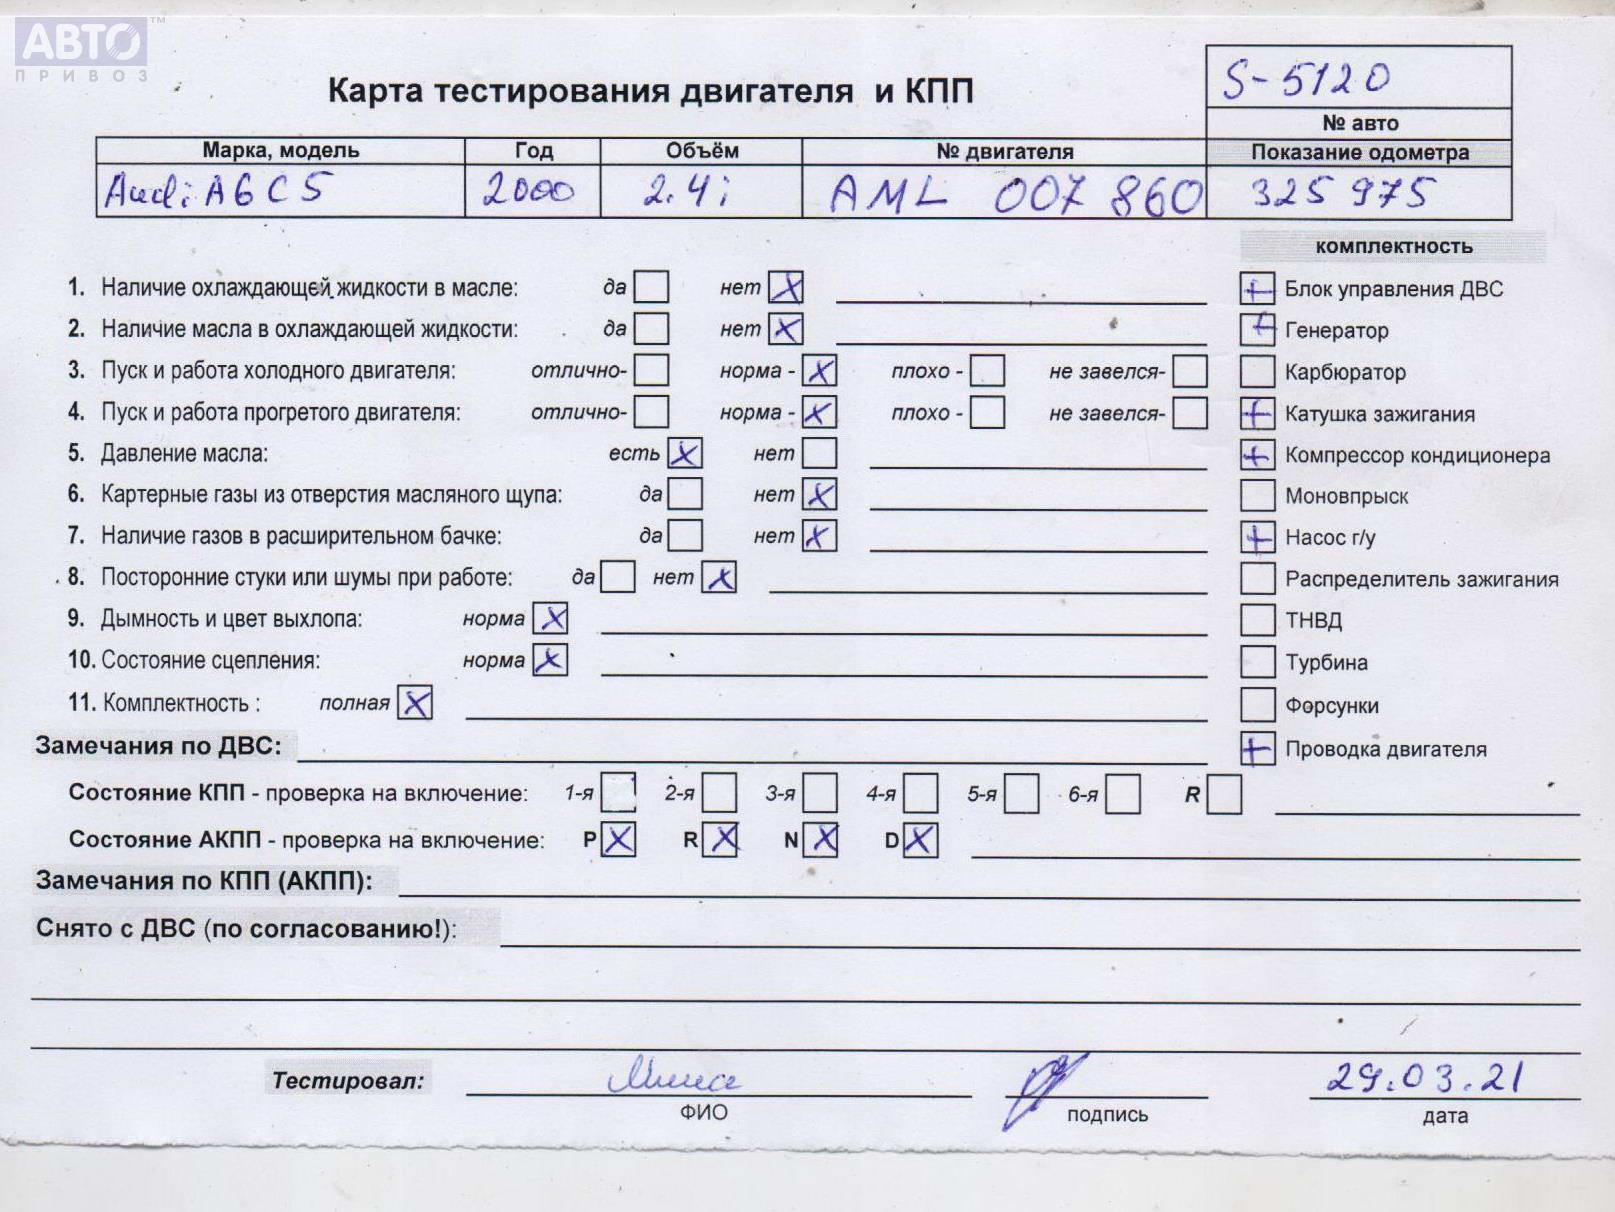 АВТО™
ПРИВОЗ
Карта тестирования двигателя и КПП
S-5120
№ авто
Марка, модель Год Объём № двигателя Показание одометра
Audi A6 C5 2000 2.4i AML 007 860 325 975
комплектность
1. Наличие охлаждающей жидкости в масле: да нет X
+ Блок управления ДВС
2. Наличие масла в охлаждающей жидкости: да нет X
+ Генератор
3. Пуск и работа холодного двигателя: отлично- норма - X плохо - не завелся-
Карбюратор
4. Пуск и работа прогретого двигателя: отлично- норма - X плохо - не завелся-
+ Катушка зажигания
5. Давление масла: есть X нет
+ Компрессор кондиционера
6. Картерные газы из отверстия масляного щупа: да нет X
Моновпрыск
7. Наличие газов в расширительном бачке: да нет X
+ Насос г/у
8. Посторонние стуки или шумы при работе: да нет X
Распределитель зажигания
9. Дымность и цвет выхлопа: норма X
ТНВД
10. Состояние сцепления: норма X
Турбина
11. Комплектность : полная X
Форсунки
Замечания по ДВС:
+ Проводка двигателя
Состояние КПП - проверка на включение: 1-я 2-я 3-я 4-я 5-я 6-я R
Состояние АКПП - проверка на включение: P X R X N X D X
Замечания по КПП (АКПП):
Снято с ДВС (по согласованию!):
Тестировал: 29.03.21
ФИО подпись дата